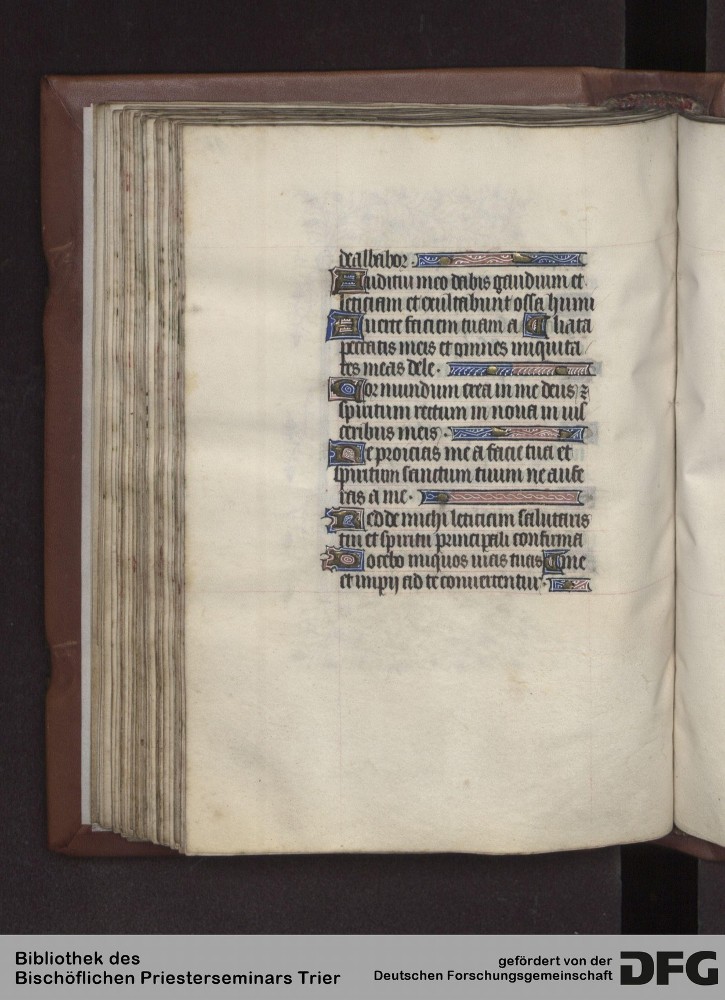 dealbabor.
Auditui meo dabis gaudium et
leticiam et exultabunt ossa humi
Auerte faciem tuam a liata
peccatis meis et omnes iniquita
tes meas dele.
Cor mundum crea in me deus ⁊
spiritum rectum in noua in uis
ceribus meis.
Ne proicias me a facie tua et
spiritum sanctum tuum ne aufe
ras a me.
Redde michi leticiam salutaris
tui et spiritu principali confirma
Docebo iniquos uias tuas me
et impij ad te conuertentur.
Bibliothek des
Bischöflichen Priesterseminars Trier
gefördert von der
Deutschen Forschungsgemeinschaft
DFG